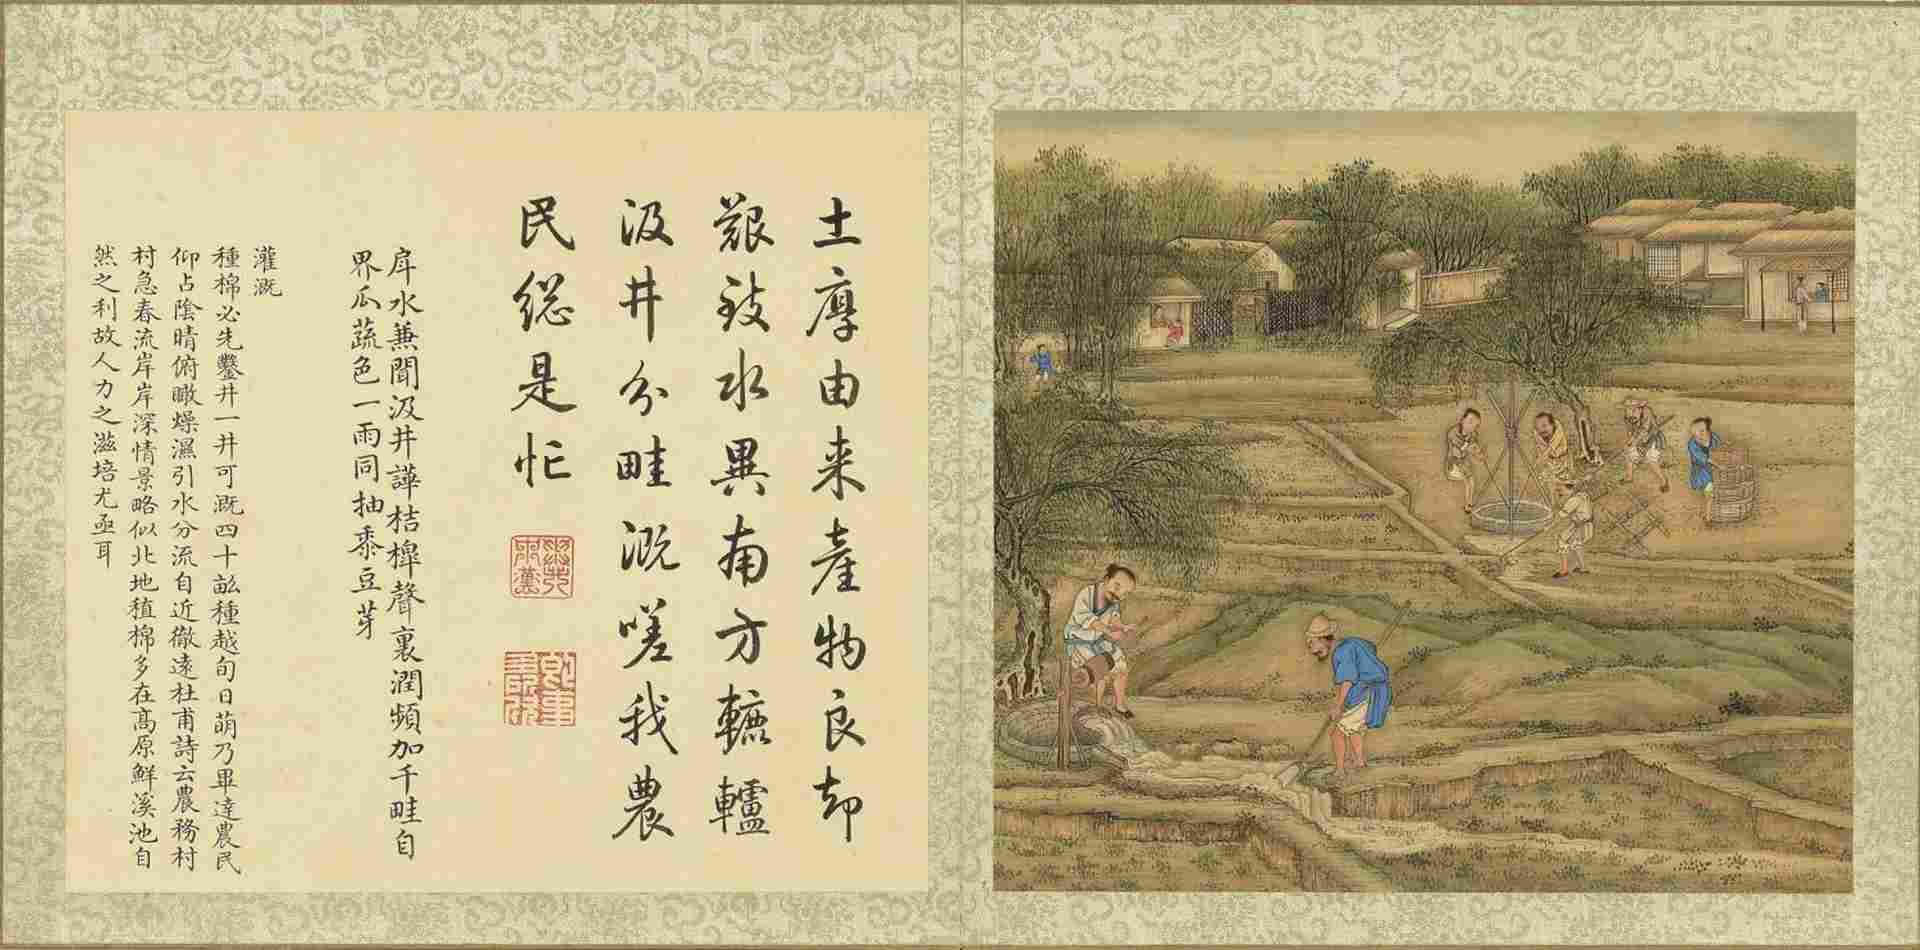 土厚由来産物良却
艱致水異南方轆轤
汲井分畦溉嗟我農
民総是忙
戽水兼聞汲井譁桔橰聲裏潤頻加千畦自
界瓜蔬色一雨同抽黍豆芽
灌溉
種棉必先鑿井一井可溉四十畝種越旬日萌乃畢達農民
仰占陰晴俯瞰燥濕引水分流自近徹遠杜甫詩云農務村
村急春流岸岸深情景略似北地植棉多在高原鮮溪池自
然之利故人力之滋培尤亟耳